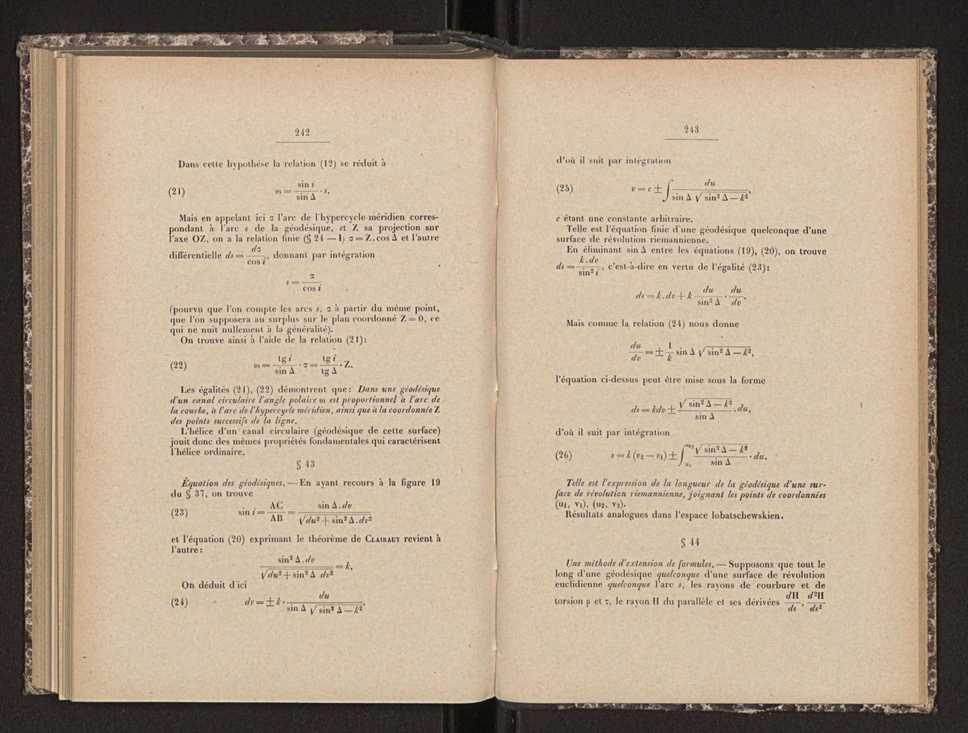 242
Dans cette hypothèse la relation (12) se réduit à
(21) ω = sin i / sin Δ · s.
Mais en appelant ici σ l'arc de l'hypercycle méridien corres-
pondant à l'arc s de la géodésique, et Z sa projection sur
l'axe OZ, on a la relation finie (§ 24 — I) σ = Z.cos Δ et l'autre
différentielle ds = dσ / cos i, donnant par intégration
s = σ / cos i
(pourvu que l'on compte les arcs s, σ à partir du même point,
que l'on supposera au surplus sur le plan coordonné Z = 0, ce
qui ne nuit nullement à la généralité).
On trouve ainsi à l'aide de la relation (21):
(22) ω = tg i / sin Δ · σ = tg i / tg Δ · Z.
Les égalités (21), (22) démontrent que: Dans une géodésique
d'un canal circulaire l'angle polaire ω est proportionnel à l'arc de
la courbe, à l'arc de l'hypercycle méridien, ainsi que à la coordonnée Z
des points successifs de la ligne.
L'hélice d'un canal circulaire (géodésique de cette surface)
jouit donc des mêmes propriétés fondamentales qui caractérisent
l'hélice ordinaire.
§ 43
Équation des géodésiques. — En ayant recours à la figure 19
du § 37, on trouve
(23) sin i = AC / AB = sin Δ.dv / √(du² + sin² Δ.dv²)
et l'équation (20) exprimant le théorème de CLAIRAUT revient à
l'autre:
sin² Δ.dv / √(du² + sin² Δ dv²) = k,
On déduit d'ici
(24) dv = ± k · du / sin Δ √(sin² Δ — k²),
243
d'où il suit par intégration
(25) v = c ± ∫ du / sin Δ √(sin² Δ — k²),
c étant une constante arbitraire.
Telle est l'équation finie d'une géodésique quelconque d'une
surface de révolution riemannienne.
En éliminant sin Δ entre les équations (19), (20), on trouve
ds = k.dv / sin² i, c'est-à-dire en vertu de l'égalité (23):
ds = k.dv + k du / sin² Δ · du / dv.
Mais comme la relation (24) nous donne
du / dv = ± 1 / k sin Δ √(sin² Δ — k²),
l'équation ci-dessus peut être mise sous la forme
ds = kdv ± √(sin² Δ — k²) / sin Δ · du,
d'où il suit par intégration
(26) s = k (v₂ — v₁) ± ∫ᵤ₁ᵘ² √(sin² Δ — k²) / sin Δ · du.
Telle est l'expression de la longueur de la géodésique d'une sur-
face de révolution riemannienne, joignant les points de coordonnées
(u₁, v₁), (u₂, v₂).
Résultats analogues dans l'espace lobatschewskien.
§ 44
Une méthode d'extension de formules. — Supposons que tout le
long d'une géodésique quelconque d'une surface de révolution
euclidienne quelconque l'arc s, les rayons de courbure et de
torsion ρ et τ, le rayon H du parallèle et ses dérivées dH / ds, d²H / ds²